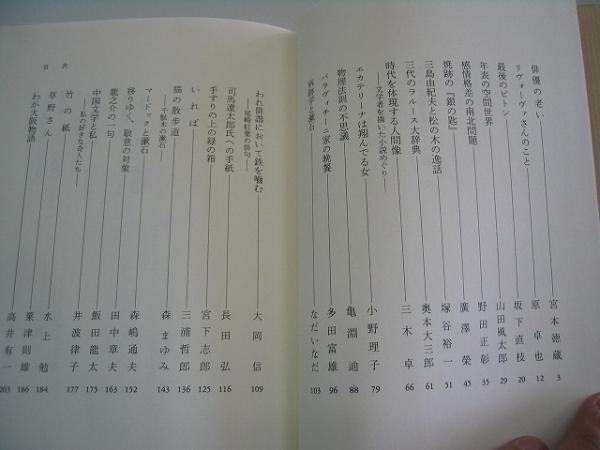 俳優の老い 宮本徳蔵 3
リヴォーヴァさんのこと 原卓也 12
最後のピトン 坂下直枝 20
年表の空間世界 山田風太郎 29
感情格差の南北問題 野田正彰 35
焼跡の『銀の匙』 廣澤榮 45
三島由紀夫と松の木の逸話 塚谷裕一 51
三代のラルース大辞典 奥本大三郎 61
時代を体現する人間像 三木卓 66
——文学者を描いた小説めぐり——
エカテリーナは翔んでる女 小野理子 79
物理法則の不思議 亀淵迪 88
パラヴィチーニ家の晩餐 多田富雄 96
学と漱石 なだいなだ 103
われ俳諧において鉄を嚙む 大岡信 109
——尾崎紅葉の俳句——
司馬遼太郎氏への手紙 長田弘 116
手すりの上の緑の箱 宮下志郎 125
いれば 三浦哲郎 136
猫の散歩道 森まゆみ 143
——千駄木の漱石——
マードックと漱石 森嶋通夫 152
移りゆく、敬意の対象 田中章夫 163
龍之介の一句 飯田龍太 175
中国文学と私 井波律子 177
——私の好きな奇人たち——
竹の紙 水上勉 184
草野さん 粟津則雄 186
わが大阪物語 高井有一 203
目次